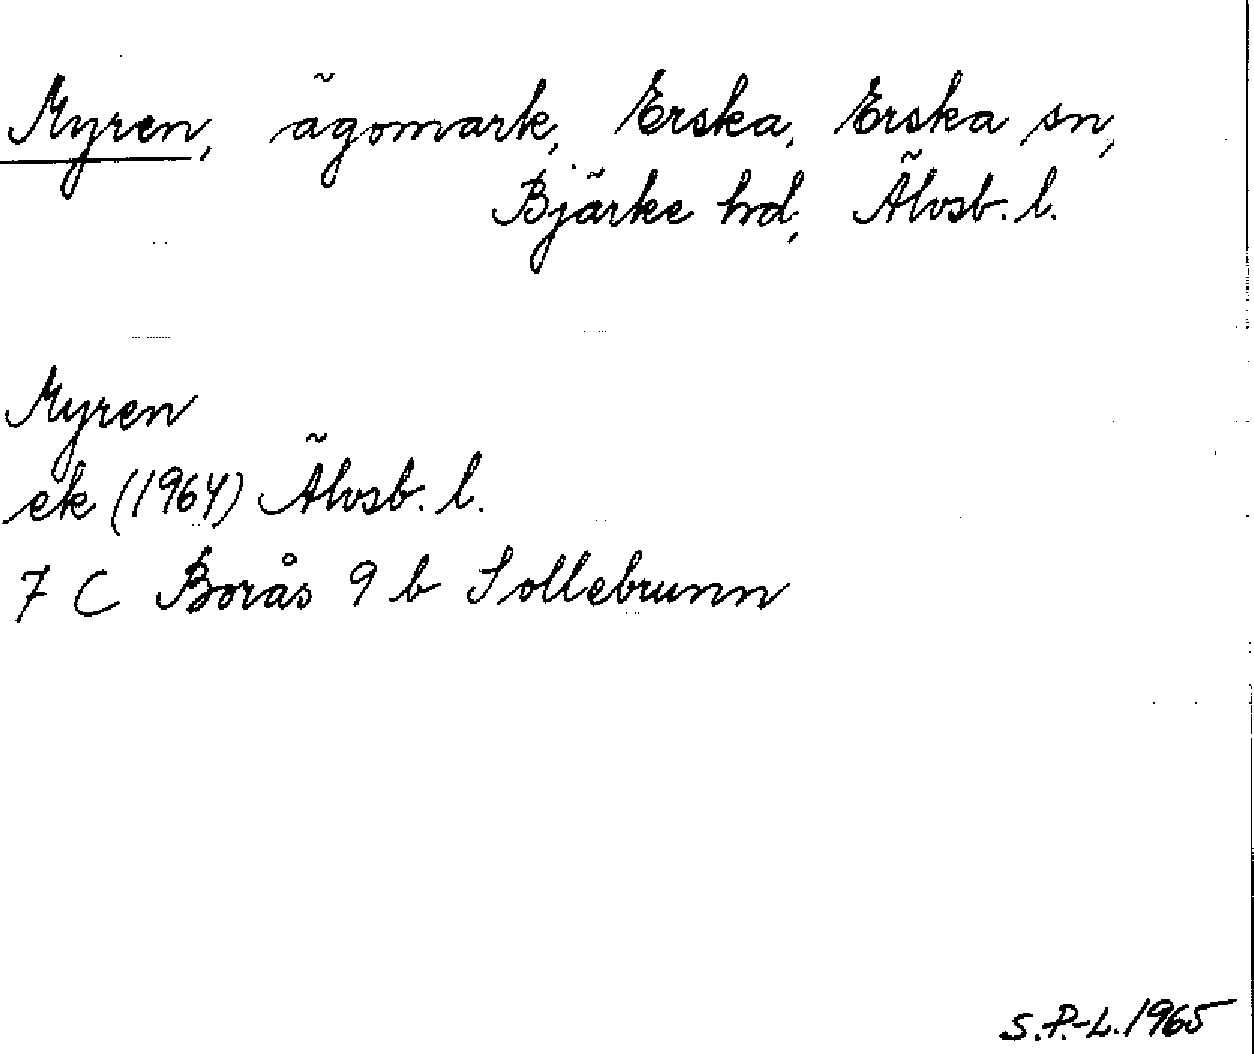 Myren, ägomark, Erska, Erska sn,
Bjärke hd, Älvsb. l.
Myren
ek (1964) Älvsb. l.
7 C Borås 9 b Sollebrunn
S.P.-L. 1965